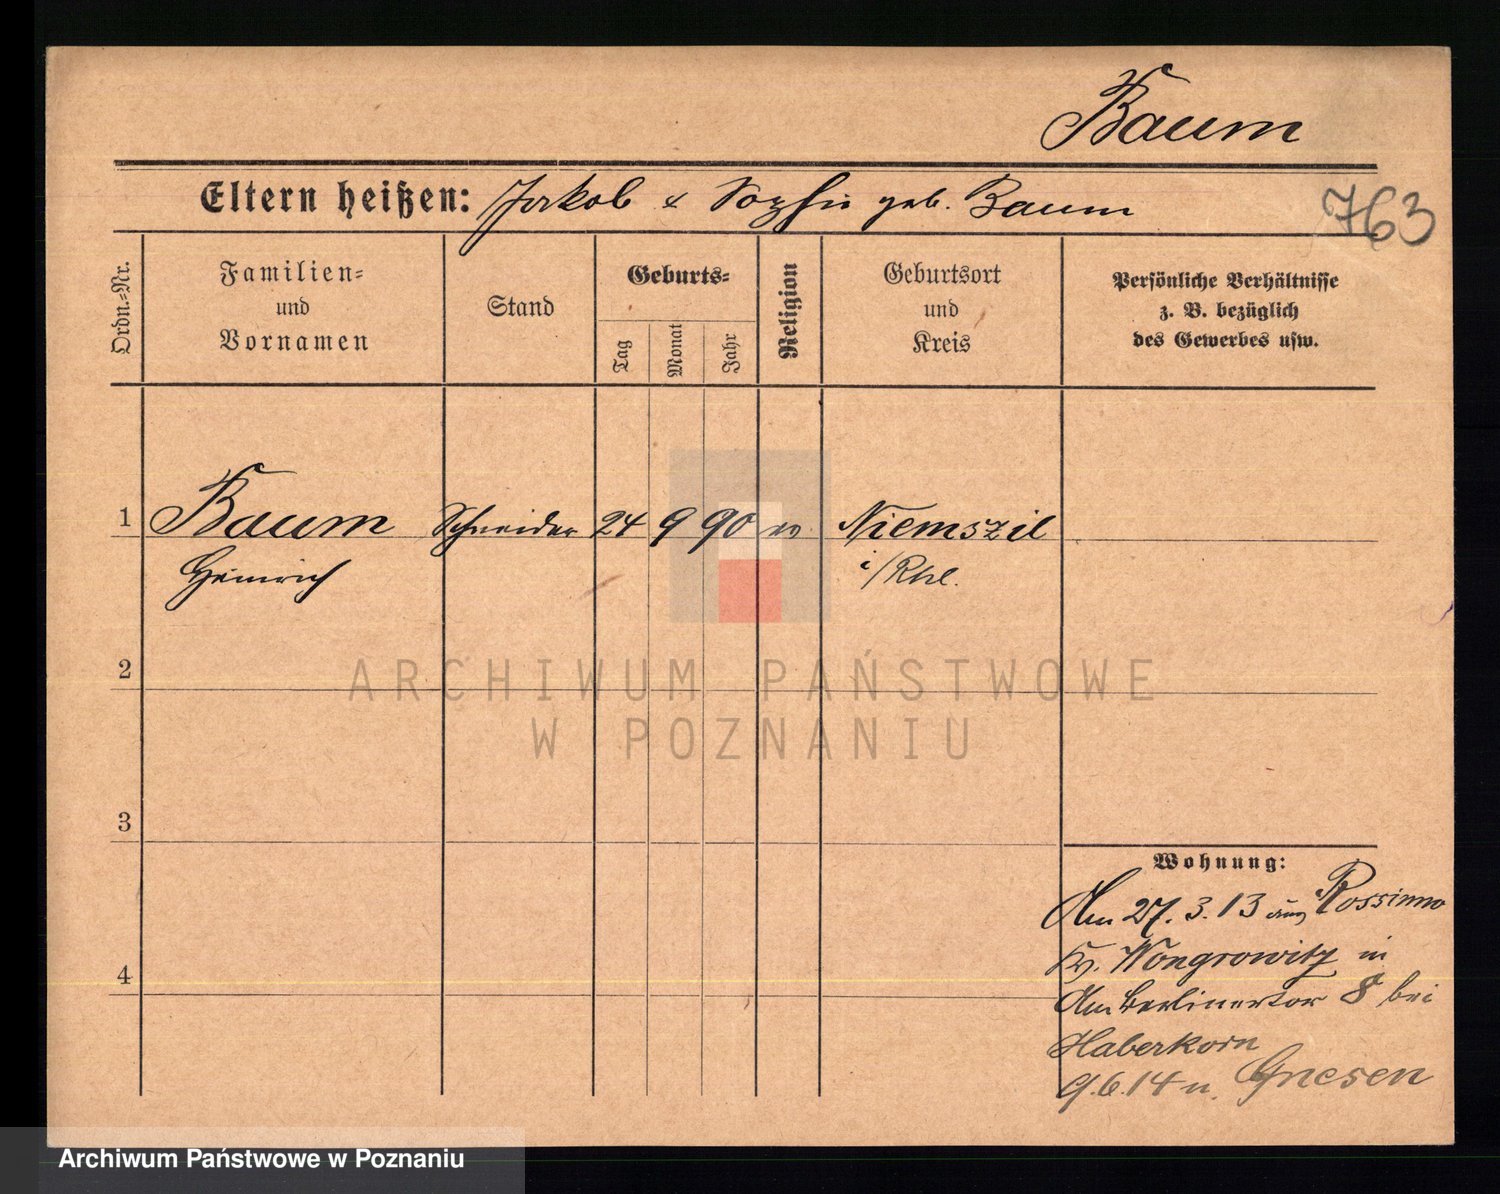 Baum
Eltern heißen: Jakob & Sophie geb. Baum
763
Ordn.-Nr.
Familien-
und
Vornamen
Stand
Geburts-
Tag
Monat
Jahr
Religion
Geburtsort
und
Kreis
Persönliche Verhältnisse
z. B. bezüglich
des Gewerbes usw.
1 Baum Schneider 24 9 90 ev. Niemszil
Heinrich i/Rhl.
2
ARCHIWUM PAŃSTWOWE
W POZNANIU
3
4
Wohnung:
Am 27. 3. 13 aus Rossinno
Kr. Wongrowitz in
Am Berlinertor 8 bei
Haberkorn
9.6.14 n. Gnesen
Archiwum Państwowe w Poznaniu